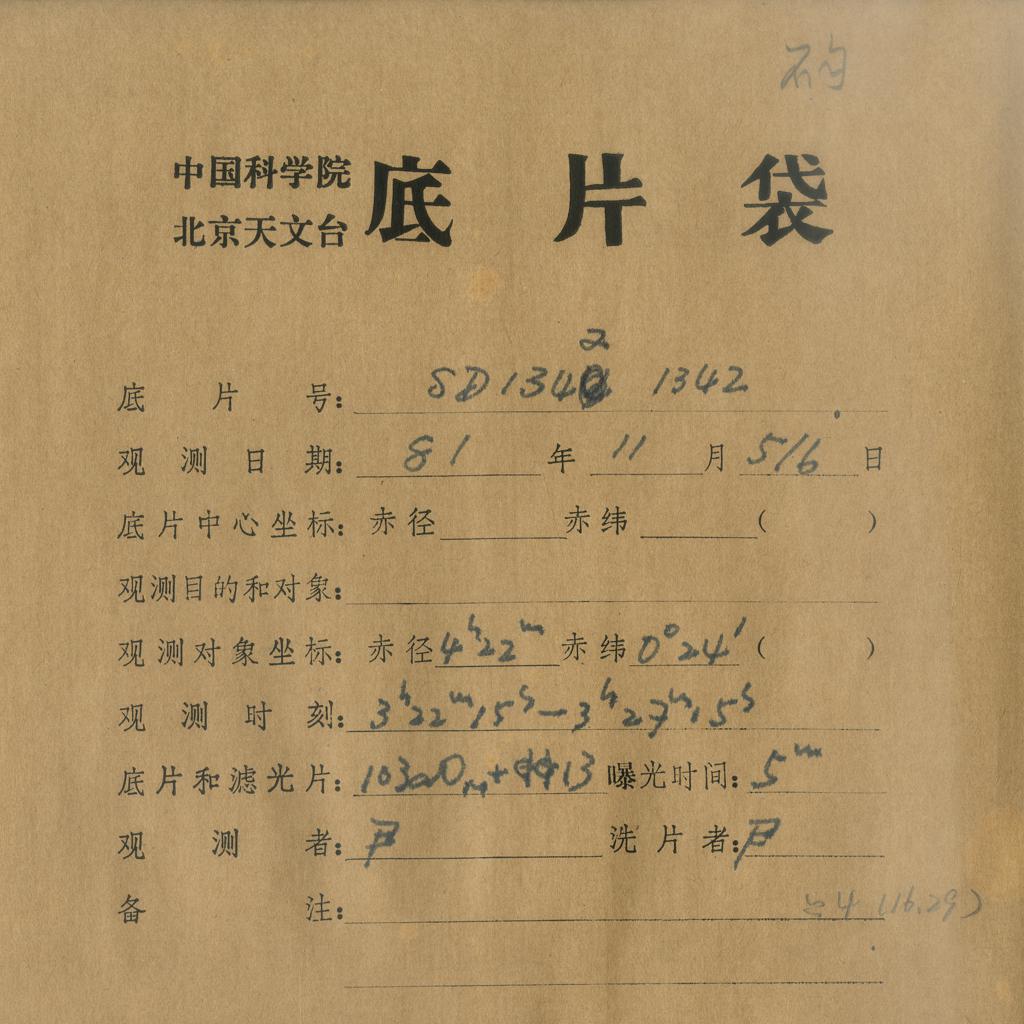 中国科学院
北京天文台
底片袋
底片号: SD1342 1342
观测日期: 81年11月5/6日
底片中心坐标: 赤径 赤纬 ( )
观测目的和对象:
观测对象坐标: 赤径 4h22m 赤纬 0°24′ ( )
观测时刻: 3h22m15s—3h27m15s
底片和滤光片: 103aO + 13 曝光时间: 5m
观测者: 尹 洗片者: 尹
备注: 4 (16.29)